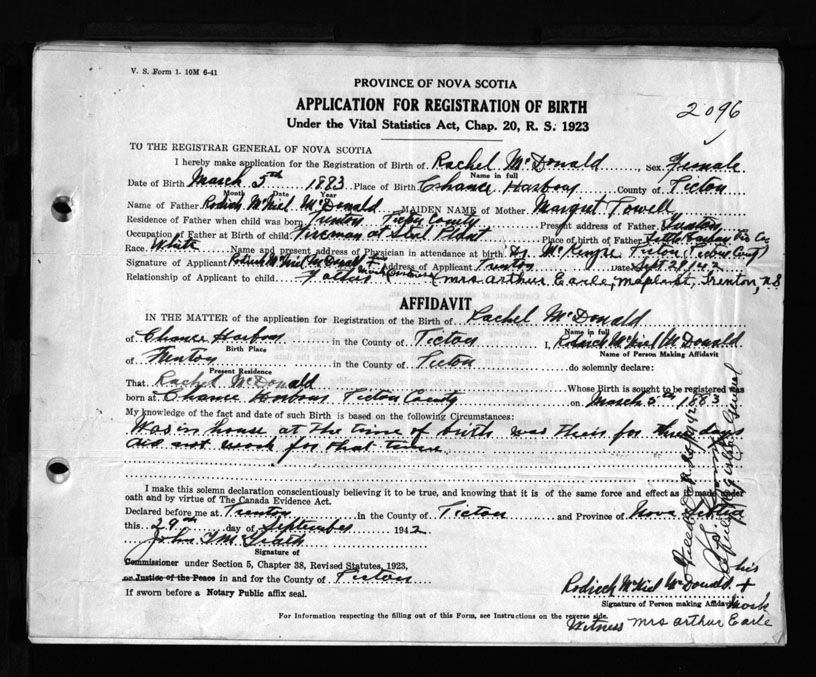 V. S. Form 1. 10M 6-41
PROVINCE OF NOVA SCOTIA
APPLICATION FOR REGISTRATION OF BIRTH
2096
Under the Vital Statistics Act, Chap. 20, R. S. 1923
TO THE REGISTRAR GENERAL OF NOVA SCOTIA
I hereby make application for the Registration of Birth of Rachel McDonald, Sex Female
Name in full
Date of Birth March 5th 1883 Place of Birth Chance Harbour County of Pictou
Month Date Year
Name of Father Rodrick McNiel McDonald MAIDEN NAME of Mother Margret Powell
Residence of Father when child was born Trenton Pictou County Present address of Father Trenton
Occupation of Father at Birth of child Fireman at Steel Plant Place of birth of Father Little Harbour Pic Co
Race White Name and present address of Physician in attendance at birth Dr McKenzie Pictou (Pictou County)
Signature of Applicant Rodrick McNiel McDonald + Address of Applicant Trenton Date Sept 29/42
Relationship of Applicant to child Father (Mrs Arthur Earle, Trenton, N.S
AFFIDAVIT
IN THE MATTER of the application for Registration of the Birth of Rachel McDonald
Name in full
of Chance Harbour in the County of Pictou I, Rodrick McNiel McDonald
Birth Place Name of Person Making Affidavit
of Trenton in the County of Pictou do solemnly declare:
Present Residence
That Rachel McDonald Whose Birth is sought to be registered was
born at Chance Harbour Pictou County on March 5th 1883
My knowledge of the fact and date of such Birth is based on the following Circumstances:
Was in house at the time of birth was their for three days
did not work for that time
I make this solemn declaration conscientiously believing it to be true, and knowing that it is of the same force and effect as if made under
oath and by virtue of The Canada Evidence Act.
Declared before me at Trenton in the County of Pictou and Province of Nova Scotia
this 29th day of September 1942
John
Signature of
Commissioner under Section 5, Chapter 38, Revised Statutes, 1923,
or Justice of the Peace in and for the County of Pictou
If sworn before a Notary Public affix seal.
his
Rodrick McNiel McDonald +
Signature of Person making Affidavit mark
For Information respecting the filling out of this Form, see Instructions on the reverse side.
Witness Mrs Arthur Earle
Registrar General